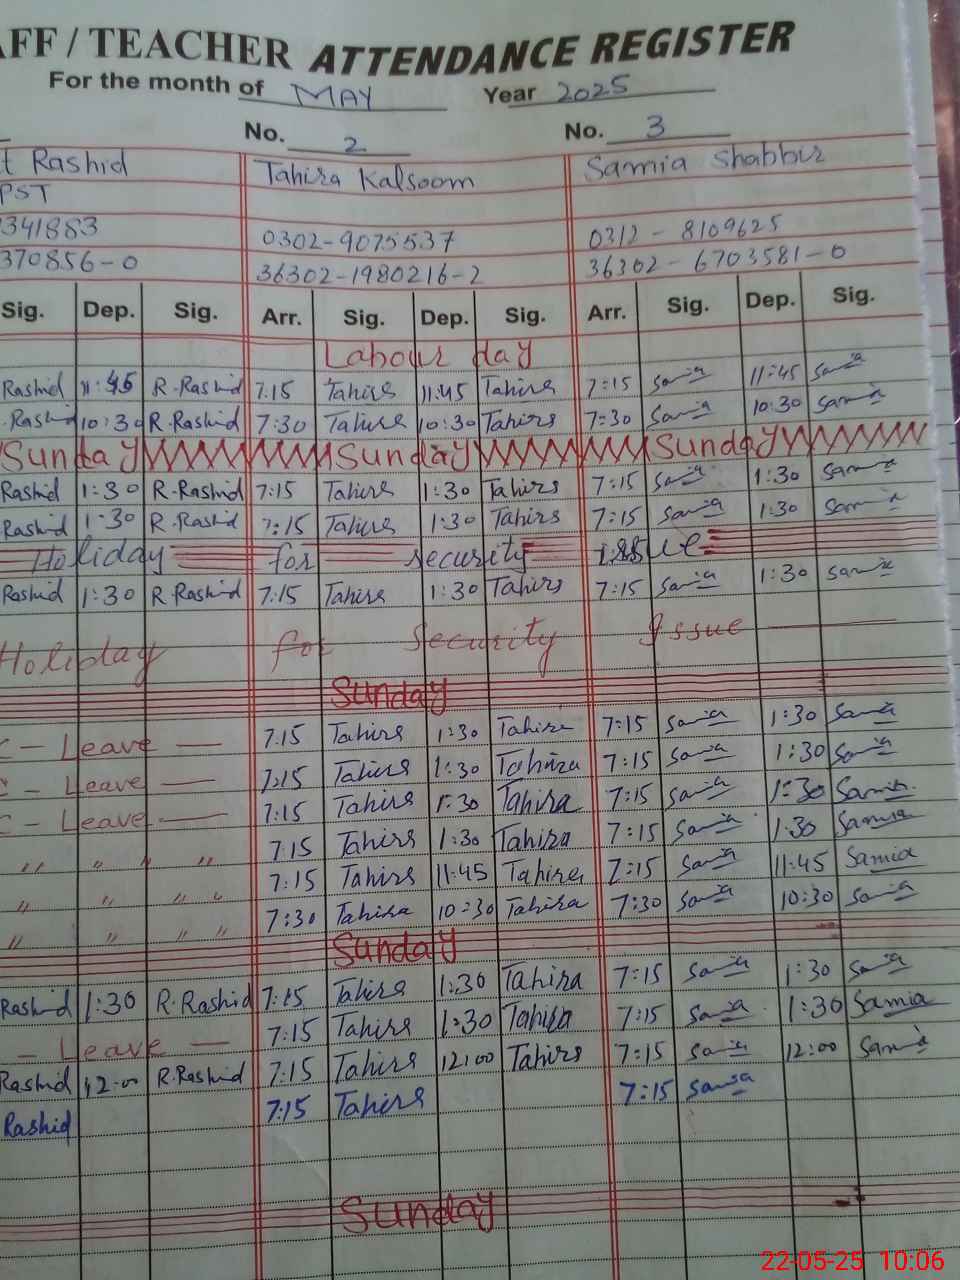 AFF / TEACHER ATTENDANCE REGISTER
For the month of MAY Year 2025
No. 2 No. 3
t Rashid Tahira Kalsoom Samia Shabbir
PST
341883 0302-9075537 0312-8109625
370856-0 36302-1980216-2 36302-6703581-0
Sig. Dep. Sig. Arr. Sig. Dep. Sig. Arr. Sig. Dep. Sig.
Labour day
Rashid 11:45 R.Rashid 7:15 Tahira 11:45 Tahira 7:15 Samia 11:45 Samia
Rashid 10:30 R.Rashid 7:30 Tahira 10:30 Tahira 7:30 Samia 10:30 Samia
Sunday Sunday Sunday
Rashid 1:30 R.Rashid 7:15 Tahira 1:30 Tahira 7:15 Samia 1:30 Samia
Rashid 1:30 R.Rashid 7:15 Tahira 1:30 Tahira 7:15 Samia 1:30 Samia
Holiday for security issue
Rashid 1:30 R.Rashid 7:15 Tahira 1:30 Tahira 7:15 Samia 1:30 Samia
Holiday for Security Issue
Sunday
- Leave - 7:15 Tahira 1:30 Tahira 7:15 Samia 1:30 Samia
- Leave - 7:15 Tahira 1:30 Tahira 7:15 Samia 1:30 Samia
- Leave - 7:15 Tahira 1:30 Tahira 7:15 Samia 1:30 Samia
" " " " 7:15 Tahira 1:30 Tahira 7:15 Samia 1:30 Samia
" " " " 7:15 Tahira 11:45 Tahira 7:15 Samia 11:45 Samia
" " " " 7:30 Tahira 10:30 Tahira 7:30 Samia 10:30 Samia
Sunday
Rashid 1:30 R.Rashid 7:15 Tahira 1:30 Tahira 7:15 Samia 1:30 Samia
- Leave - 7:15 Tahira 1:30 Tahira 7:15 Samia 1:30 Samia
Rashid 12:00 R.Rashid 7:15 Tahira 12:00 Tahira 7:15 Samia 12:00 Samia
Rashid 7:15 Tahira 7:15 Samia
Sunday
22-05-25 10:06